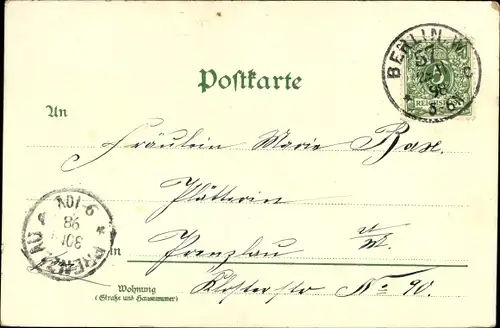 BERLIN. W.
57
98
5-6N
REICHSPOST
Postkarte
An
Fräulein Marie Bax.
Plätterin
in Prenzlau U/M.
Wohnung
(Straße und Hausnummer)
Klosterstr No 90.
PRENZLAU
30/
98
9-10V